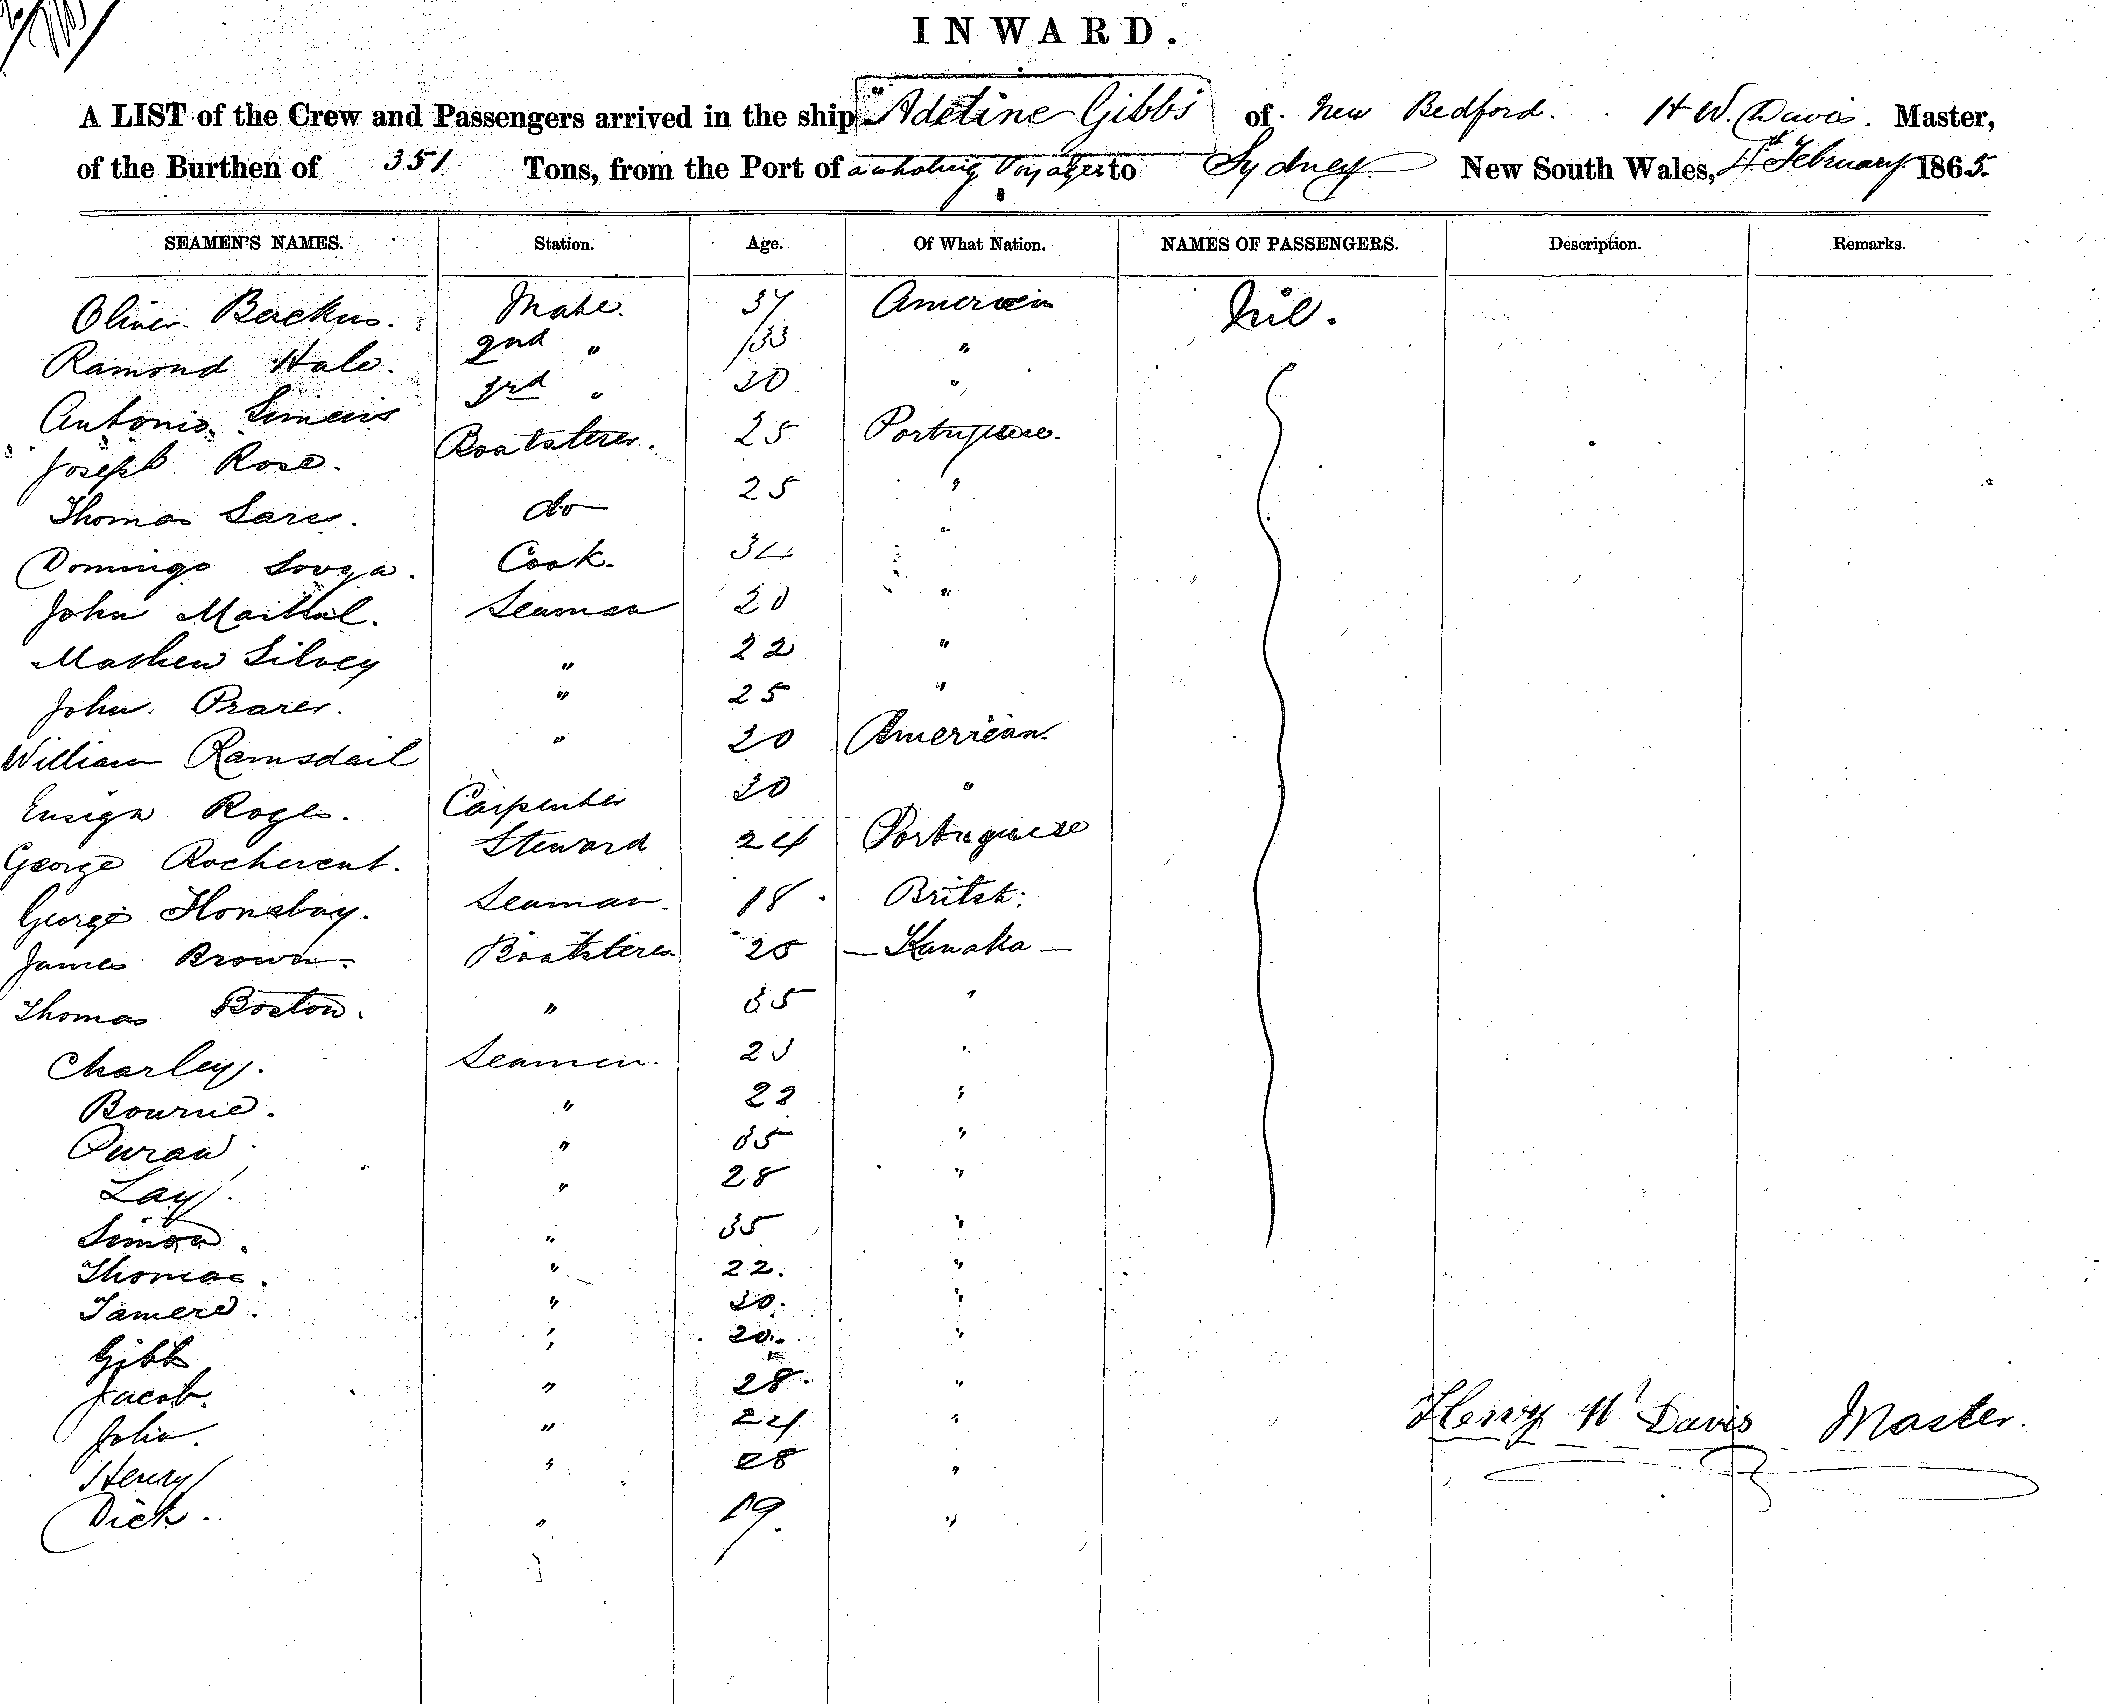 INWARD.
A LIST of the Crew and Passengers arrived in the ship "Adeline Gibbs of New Bedford. H W. Davis. Master,
of the Burthen of 351 Tons, from the Port of a whaling Voyage to Sydney New South Wales, 4th February 1865.
SEAMEN'S NAMES. Station. Age. Of What Nation. NAMES OF PASSENGERS. Description. Remarks.
Oliver Backus. Mate. 37 American Nil.
Ramond Hale. 2nd " 33 "
Antonio 3rd " 30 "
Joseph Rose. Boatsterer. 25 Portuguese.
Thomas do 25 "
Domingo Cook. 34 "
John Seaman 20 "
Mathew Silvey " 22 "
John " 25 "
William Ramsdail " 20 American.
Ensign Carpenter 30 "
George Steward 24 Portuguese
George Seaman. 18 British.
James Brown. Boatsterer 25 — Kanaka —
Thomas Boston. " 35 "
Charley. Seamen. 23 "
Bourne. " 22 "
" 35 "
Lay. " 28 "
Simon. " 35 "
Thomas. " 22. "
" 30. "
Gibb " 20. "
Jacob. " 28. "
John. " 24 "
Henry " 28 "
Dick. " 19. "
Henry W Davis Master.